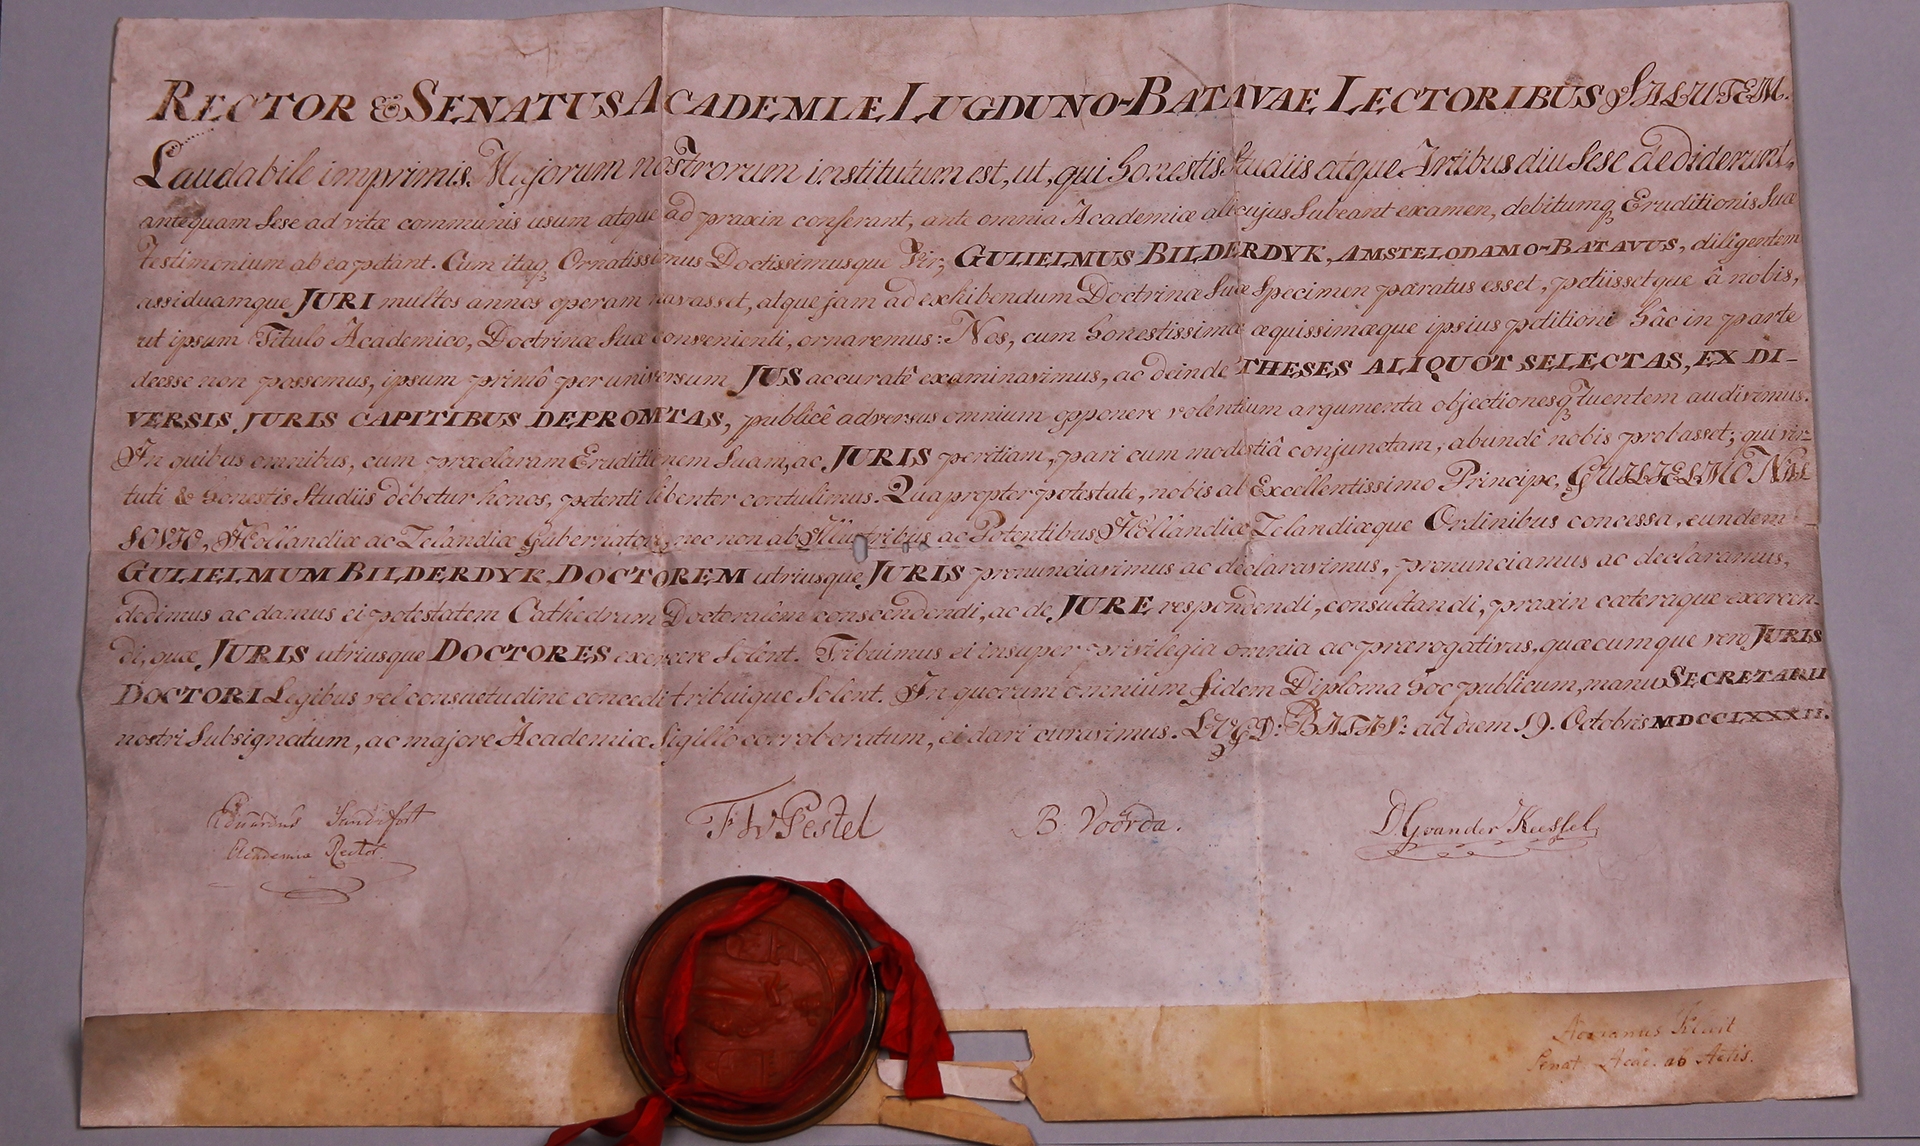 RECTOR & SENATUS ACADEMIÆ LUGDUNO-BATAVAE LECTORIBUS SALUTEM.
Laudabile imprimis Majorum nostrorum institutum est, ut, qui honestis Studiis atque Artibus diu sese dediderunt,
antequam sese ad vitæ communis usum atque ad praxin conferant, ante omnia Academiæ alicujus subeant examen, debitumq; Eruditionis suæ
testimonium ab ea petant. Cum itaq; Ornatissimus Doctissimusque Vir, GULIELMUS BILDERDYK, AMSTELODAMO-BATAVUS, diligentem
assiduamque JURI multos annos operam navasset, atque jam ad exhibendum Doctrinæ suæ specimen paratus esset, petiissetque â nobis,
ut ipsum Titulo Academico, Doctrinæ suæ convenienti, ornaremus: Nos, cum honestissimæ æquissimæque ipsius petitioni hâc in parte
deesse non possemus, ipsum primô per universum JUS accuratê examinavimus, ac deinde THESES ALIQUOT SELECTAS, EX DI-
VERSIS JURIS CAPITIBUS DEPROMTAS, publicê adversus omnium opponere volentium argumenta objectionesq; tuentem audivimus.
In quibus omnibus, cum præclaram Eruditionem suam, ac JURIS peritiam, pari cum modestiâ conjunctam, abundê nobis probasset; qui vir-
tuti & honestis Studiis debetur honos, petenti libenter contulimus. Quapropter potestate, nobis ab Excellentissimo Principe, GULIELMO NAS-
SOVIO, Hollandiæ ac Zelandiæ Gubernatore, nec non ab Illustribus ac Potentibus Hollandiæ Zelandiæque Ordinibus concessa, eundem
GULIELMUM BILDERDYK DOCTOREM utriusque JURIS pronunciavimus ac declaravimus, pronunciamus ac declaramus,
dedimus ac damus ei potestatem Cathedram Doctoralem conscendendi, ac de JURE respondendi, consultandi, praxin cæteraque exercen-
di, quæ JURIS utriusque DOCTORES exercere solent. Tribuimus ei insuper privilegia omnia ac prærogativas, quæcumque vero JURIS
DOCTORI Legibus vel consuetudine concedi tribuique solent. In quorum omnium fidem Diploma hoc publicum, manu SECRETARII
nostri subsignatum, ac majore Academiæ sigillo corroboratum, ei dari curavimus. LUGD: BATAV: ad diem 19. Octobris MDCCLXXXII.
Eduardus Sandifort
Academiæ Rector.
F W Pestel
B. Voorda.
D G van der Keessel
Adrianus Kluit
Senat. Acad. ab Actis.